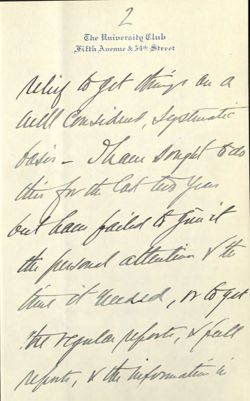 2
The University Club
Fifth Avenue & 54th Street
relief to get things on a
well considered, systematic
basis – I have sought to do
this for the last two years
but have failed to give it
the personal attention & the
time it needed, or to get
the regular reports, & full
reports, & the information in